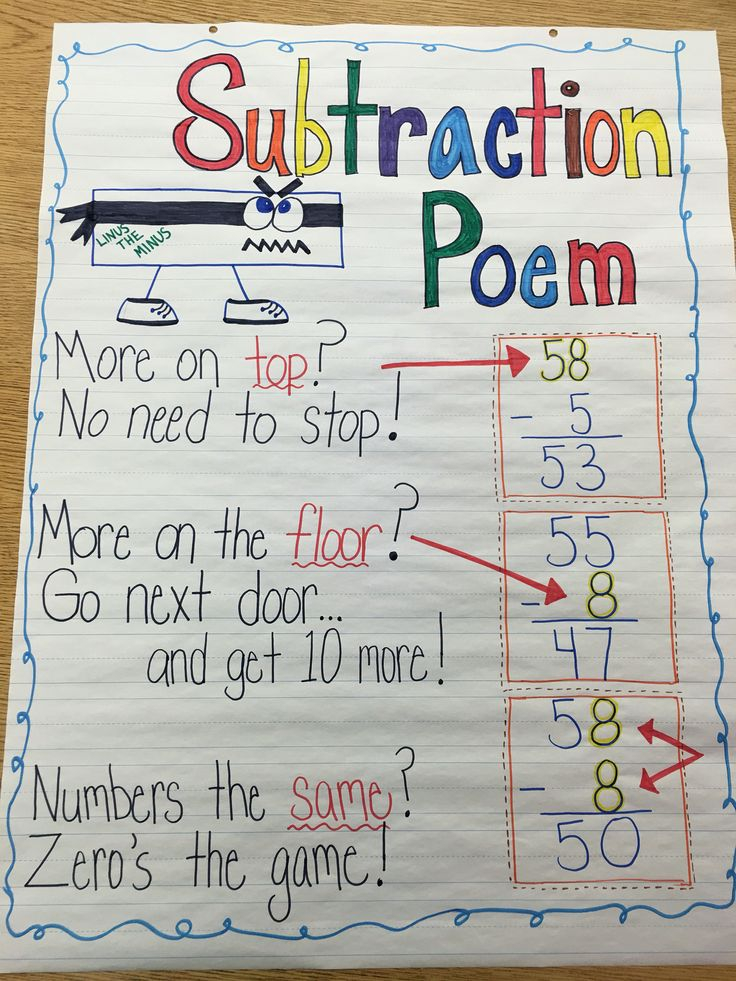 Subtraction
Poem
LINUS
THE
MINUS
More on top?
No need to stop!
58
- 5
53
More on the floor?
Go next door...
and get 10 more!
55
- 8
47
Numbers the same?
Zero's the game!
58
- 8
50